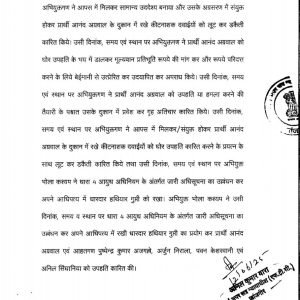 अभियुक्तगण ने आपस में मिलकर सामान्य उद्देश्य बनाया और उसके अग्रसरण में संयुक्त
होकर प्रार्थी आनंद अग्रवाल के दुकान में रखे कीटनाशक दवाईयों को लूट कर डकैती
कारित किये। उसी दिनांक, समय एवं स्थान पर अभियुक्तगण ने प्रार्थी आनंद अग्रवाल को
घोर उपहति के भय में डालकर मूल्यवान प्रतिभूति रूपये की मांग कर और रूपये परिदत्त
करने के लिए बेईमानी से उत्प्रेरित कर उद्यापित कर अपराध किये। उसी दिनांक, समय
एवं स्थान पर अभियुक्तगण ने प्रार्थी आनंद अग्रवाल को उपहति या हमला करने की
तैयारी के पश्चात उसके दुकान में प्रवेश कर गृह अतिचार कारित किये। उसी दिनांक,
समय एवं स्थान पर अभियुक्तगण ने आपस में मिलकर/संयुक्त होकर प्रार्थी आनंद
अग्रवाल के दुकान में रखे कीटनाशक दवाईयों को घोर उपहति कारित करने के प्रयत्न के
साथ लूट कर डकैती कारित किये तथा उसी दिनांक, समय एवं स्थान पर अभियुक्त
भोला कश्यप ने धारा 4 आयुध अधिनियम के अंतर्गत जारी अधिसूचना का उल्लंघन कर
अपने आधिपत्य में धारदार हथियार गुप्ती को रखा। अभियुक्त भोला कश्यप ने उसी
दिनांक, समय व स्थान पर धारा 4 आयुध अधिनियम के अंतर्गत जारी अधिसूचना का
उल्लंघन कर अपने आधिपत्य में रखी धारदार हथियार गुप्ती का प्रयोग कर प्रार्थी आनंद
अग्रवाल एवं आहतगण पुष्पेन्द्र कुमार अजगल्ले, अर्जुन निराला, पंचन केशरवानी एवं
अनिल सिंघानिया को उपहति कारित की।
12/06/25